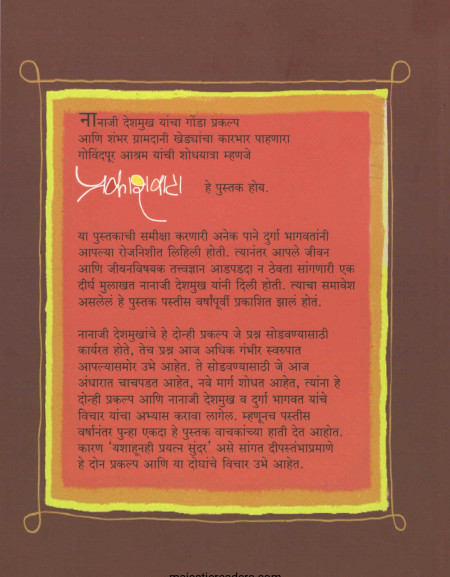 नानाजी देशमुख यांचा गोंडा प्रकल्प
आणि शंभर ग्रामदानी खेड्यांचा कारभार पाहणारा
गोविंदपूर आश्रम यांची शोधयात्रा म्हणजे
प्रकाशवाटा हे पुस्तक होय.
या पुस्तकाची समीक्षा करणारी अनेक पाने दुर्गा भागवतांनी
आपल्या रोजनिशीत लिहिली होती. त्यानंतर आपले जीवन
आणि जीवनविषयक तत्त्वज्ञान आडपडदा न ठेवता सांगणारी एक
दीर्घ मुलाखत नानाजी देशमुख यांनी दिली होती. त्याचा समावेश
असलेलं हे पुस्तक पस्तीस वर्षांपूर्वी प्रकाशित झालं होतं.
नानाजी देशमुखांचे हे दोन्ही प्रकल्प जे प्रश्न सोडवण्यासाठी
कार्यरत होते, तेच प्रश्न आज अधिक गंभीर स्वरुपात
आपल्यासमोर उभे आहेत. ते सोडवण्यासाठी जे आज
अंधारात चाचपडत आहेत, नवे मार्ग शोधत आहेत, त्यांना हे
दोन्ही प्रकल्प आणि नानाजी देशमुख व दुर्गा भागवत यांचे
विचार यांचा अभ्यास करावा लागेल. म्हणूनच पस्तीस
वर्षानंतर पुन्हा एकदा हे पुस्तक वाचकांच्या हाती देत आहोत.
कारण ‘यशाहूनही प्रयत्न सुंदर’ असे सांगत दीपस्तंभाप्रमाणे
हे दोन प्रकल्प आणि या दोघांचे विचार उभे आहेत.